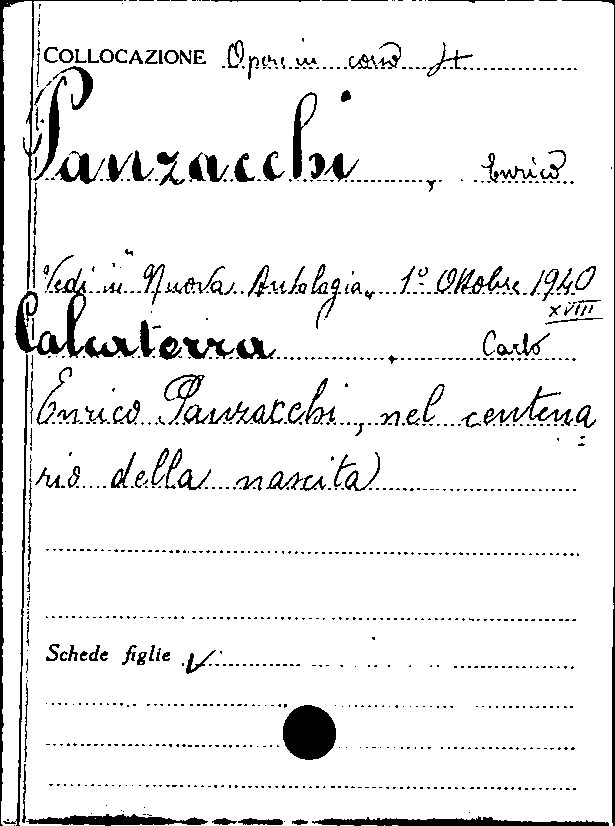 COLLOCAZIONE Opere in corso
Panzacchi, Enrico
Vedi in "Nuova Antologia„ 1° Ottobre 1940
XVIII
Calcaterra, Carlo
Enrico Panzacchi, nel centena=
rio della nascita
Schede figlie